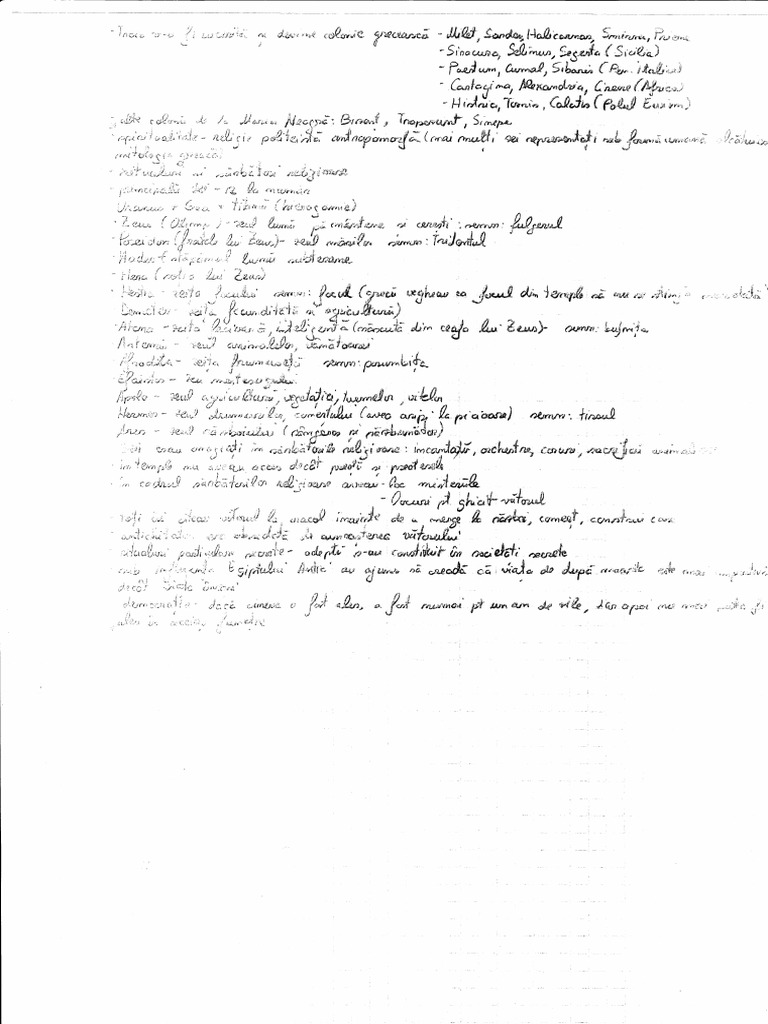 fi cucerită și devine colonie grecească - Milet, Sardes, Halicarnas, Smirna, Priene
- Siracusa, Selinus, Segesta (Sicilia)
- Paestum, Cumal, Sibaris (Pen. italică)
- Cartagina, Alexandria, Cirene (Africa)
- Histria, Tomis, Calatis (Polul Euxin)
colonii de la Marea Neagră: Bizant, Trapezunt, Sinope
spiritualitate - religie politeistă antropomorfă (mai mulți zei reprezentați sub formă umană
mitologia greacă)
- ritualuri si sărbători religioase
- principalii zei - 12 la număr
Uranus + Gea titanii (hierogamie)
Zeus (Olimp) - zeul lumii pământene si cerești: semn: fulgerul
- Poseidon (fratele lui Zeus) - zeul mărilor semn: tridentul
- Hades - stăpânul lumii subterane
- Hera (soția lui Zeus)
- Hestia - zeița focului semn: focul (grecii vegheau ca focul din temple să nu se stingă niciodată)
Demeter - zeița fecundității si agricultură)
Atena - zeița războinică, inteligentă (născută din ceafa lui Zeus) - semn: bufnița
Artemis - zeul animalelor, vânătoarei
Afrodita - zeița frumuseții semn: porumbița
Efaistos - zeu mestesugului
Apolo - zeul agriculturii, vegetației, turmelor, vitelor
Hermes - zeul drumurilor, comerțului (avea aripi la picioare) semn:
Ares - zeul războiului (sângeros și răzbunător)
Zeii erau omagiați în sărbătorile religioase: incantații, orchestre, coruri, sacrificii animale
- în temple nu aveau acces decât preoții și preotesele
- în cadrul sărbătorilor religioase aveau loc misterele
- Jocuri pt ghicit viitorul
- toți își viitorul la oracol înainte de a merge la război, comerț,
- antichitatea era obsedată de cunoașterea viitorului
- ritualuri particulare secrete - adepții s-au constituit în societăți secrete
- sub influența Egiptului Antic au ajuns să creadă că viața de după moarte este mai
decât viața
- democrația - dacă cineva a fost ales, a fost numai pt un an de zile, dar apoi nu mai putea fi
ales în aceeași funcție